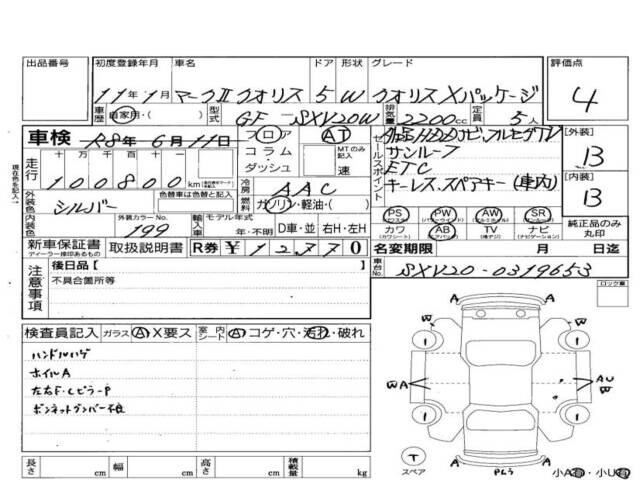 出品番号 初度登録年月 車名 ドア 形状 グレード 評価点
11年1月 マークⅡクオリス 5 W クオリス Xパッケージ 4
車歴 自家用・( ) 型式 GF-SXV20W 排気量 2200cc 定員 5人
車検 R8年6月11日
フロア AT
コラム・ MTのみ記入
ダッシュ 速
セールスポイント
サンルーフ
ETC
キーレス、スペアキー(車内)
[外装]
B
[内装]
B
走行 十万 万 千 百 十 一
100800 km
冷房 AAC
外装色 シルバー 色替車は色替と記入
燃料 ガソリン・軽油・( )
内装色 外装カラーNo. 199
輸入車 モデル年式 年・不明 D車・並 右H・左H
PS PW AW SR 純正品のみ丸印
カワ AB TV ナビ
新車保証書 取扱説明書 R券 ¥12,770
ディーラー捺印あるもの
名変期限 月 日迄
車台No. SXV20-0319653
注意事項 後日品[ ]
不具合箇所等
ロック車
検査員記入 ガラス A X要ス 室内シート A コゲ・穴・汚れ・破れ
ハンドルハゲ
ホイルA
左右F・CピラーP
ボンネットダンパー不良
A A
W W
1 1
WA AU
W
1 1
T
スペア
A A
長さ cm 幅 cm 高さ cm 積載量 kg